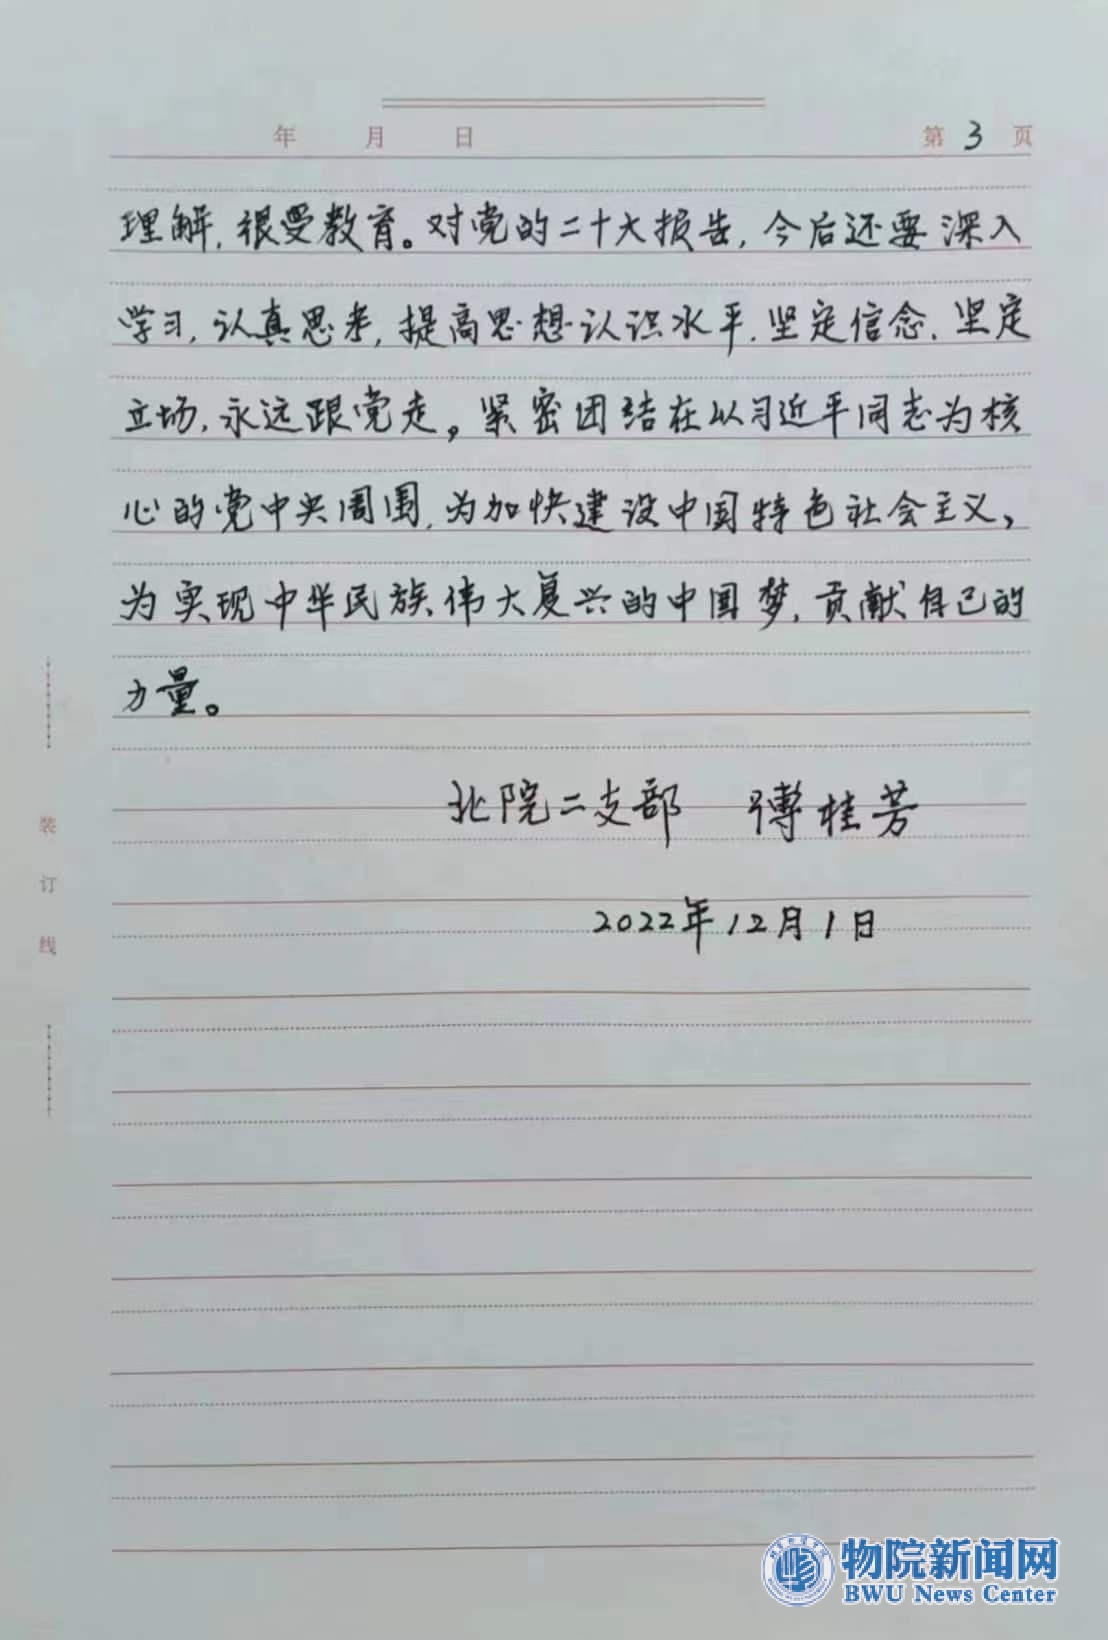 年 月 日 第 3 页
理解,很受教育。对党的二十大报告,今后还要深入
学习,认真思考,提高思想认识水平.坚定信念.坚定
立场,永远跟党走。紧密团结在以习近平同志为核
心的党中央周围,为加快建设中国特色社会主义,
为实现中华民族伟大复兴的中国梦,贡献自己的
力量。
北院二支部 傅桂芳
2022年12月1日
装订线
物院新闻网
BWU News Center